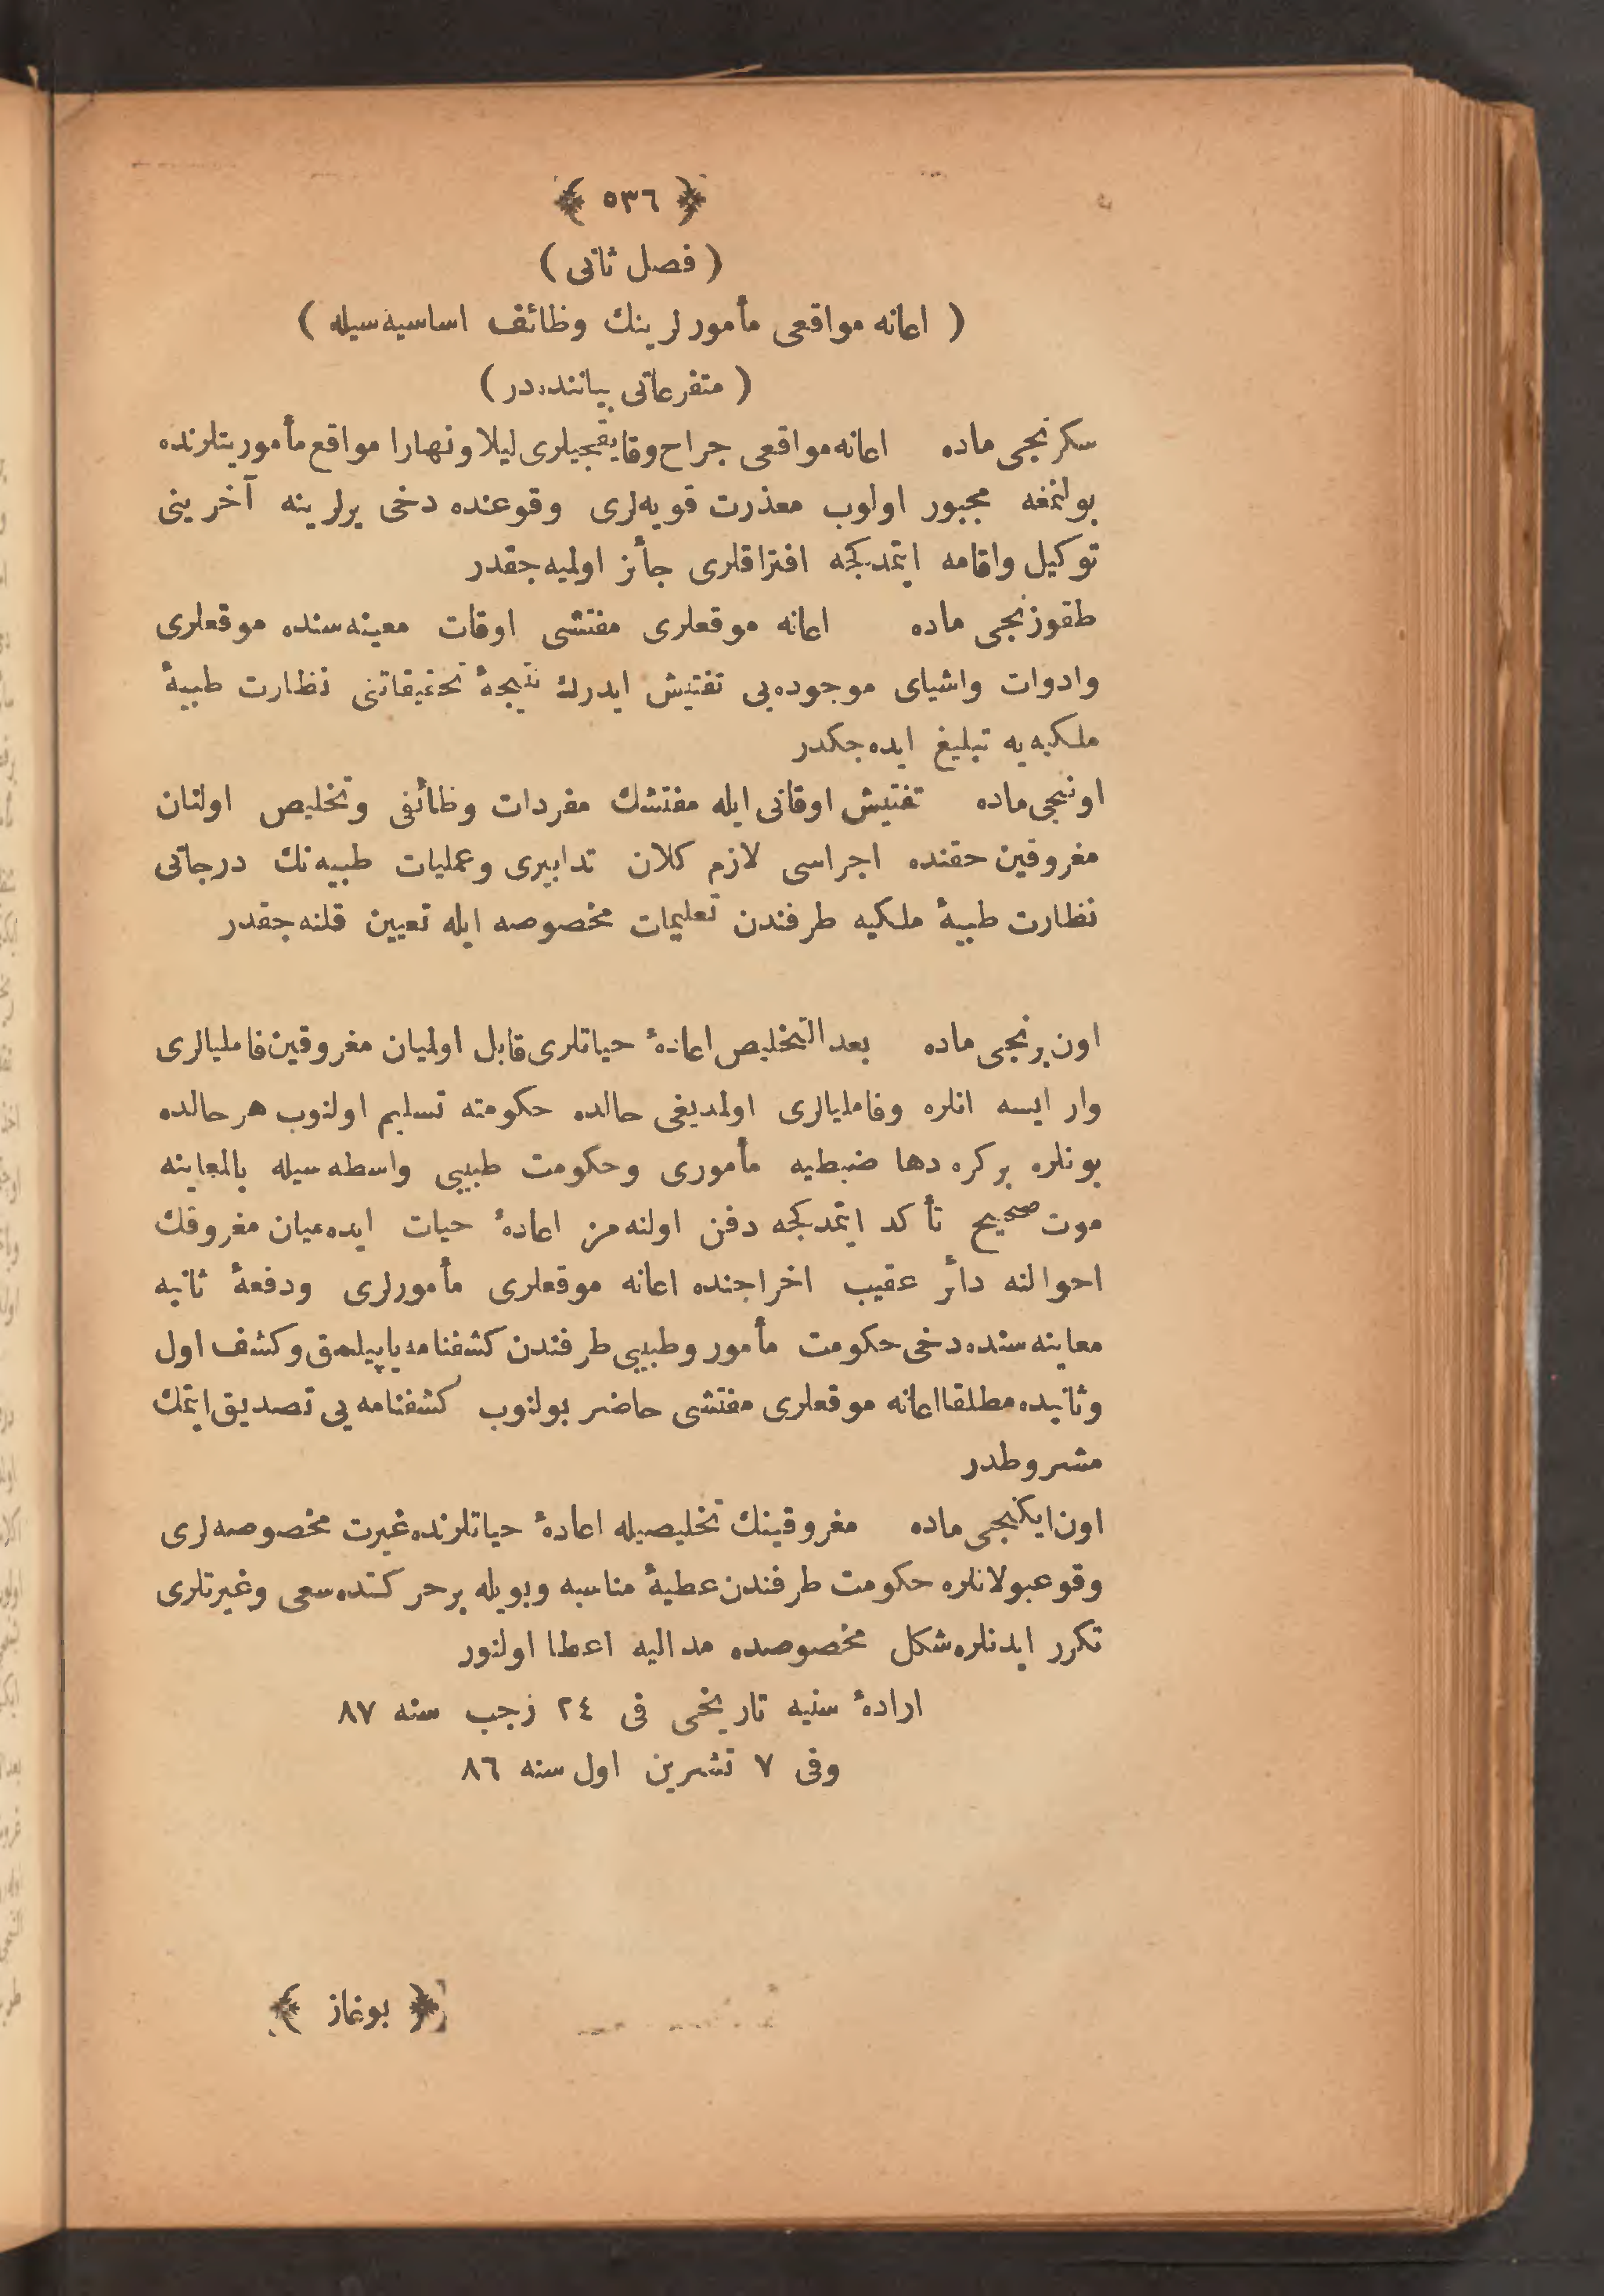 ﴿ ٥٣٦ ﴾
( فصل ثانى )
( اعانه مواقعى مأمورلرينك وظائف اساسيه‌سيله )
( متفرعاتى بياننده‌در )
سكزنجى ماده اعانه مواقعى جراح وقايقجيلرى ليلا ونهارا مواقع مأموريتلرنده
بولنمغه مجبور اولوب معذرت قويه‌لرى وقوعنده دخى يرلرينه آخرينى
توكيل واقامه ايتمدكجه افتراقلرى جائز اولميه‌جقدر
طقوزنجى ماده اعانه موقعلرى مفتشى اوقات معينه‌سنده موقعلرى
وادوات واشياى موجوده‌يى تفتيش ايدرك نتيجهٔ تحقيقاتنى نظارت طبيهٔ
ملكيه‌يه تبليغ ايده‌جكدر
اوننجى ماده تفتيش اوقاتى ايله مفتشك مفردات وظائفى وتخليص اولنان
مغروقين حقنده اجراسى لازم كلان تدابيرى وعمليات طبيه‌نك درجاتى
نظارت طبيهٔ ملكيه طرفندن تعليمات مخصوصه ايله تعيين قلنه‌جقدر
اون برنجى ماده بعد التخليص اعادهٔ حياتلرى قابل اولميان مغروقين فاميليالرى
وار ايسه انلره وفاميليالرى اولمديغى حالده حكومته تسليم اولنوب هر حالده
بونلره بر كره دها ضبطيه مأمورى وحكومت طبيبى واسطه‌سيله بالمعاينه
موت صحيح تأكد ايتمدكجه دفن اولنه‌مز اعادهٔ حيات ايده‌ميان مغروقك
احوالنه دائر عقيب اخراجنده اعانه موقعلرى مأمورلرى ودفعهٔ ثانيه
معاينه‌سنده دخى حكومت مأمور وطبيبى طرفندن كشفنامه ياپيلمق وكشف اول
وثانيده مطلقا اعانه موقعلرى مفتشى حاضر بولنوب كشفنامه‌يى تصديق ايتمك
مشروطدر
اون ايكنجى ماده مغروقينك تخليصيله اعادهٔ حياتلرنده غيرت مخصوصه‌لرى
وقوعبولانلره حكومت طرفندن عطيهٔ مناسبه وبويله بر حركتده سعى وغيرتلرى
تكرر ايدنلره شكل مخصوصده مداليه اعطا اولنور
ارادهٔ سنيه تاريخى فى ٢٤ رجب سنه ٨٧
وفى ٧ تشرين اول سنه ٨٦
﴿ بوغاز ﴾